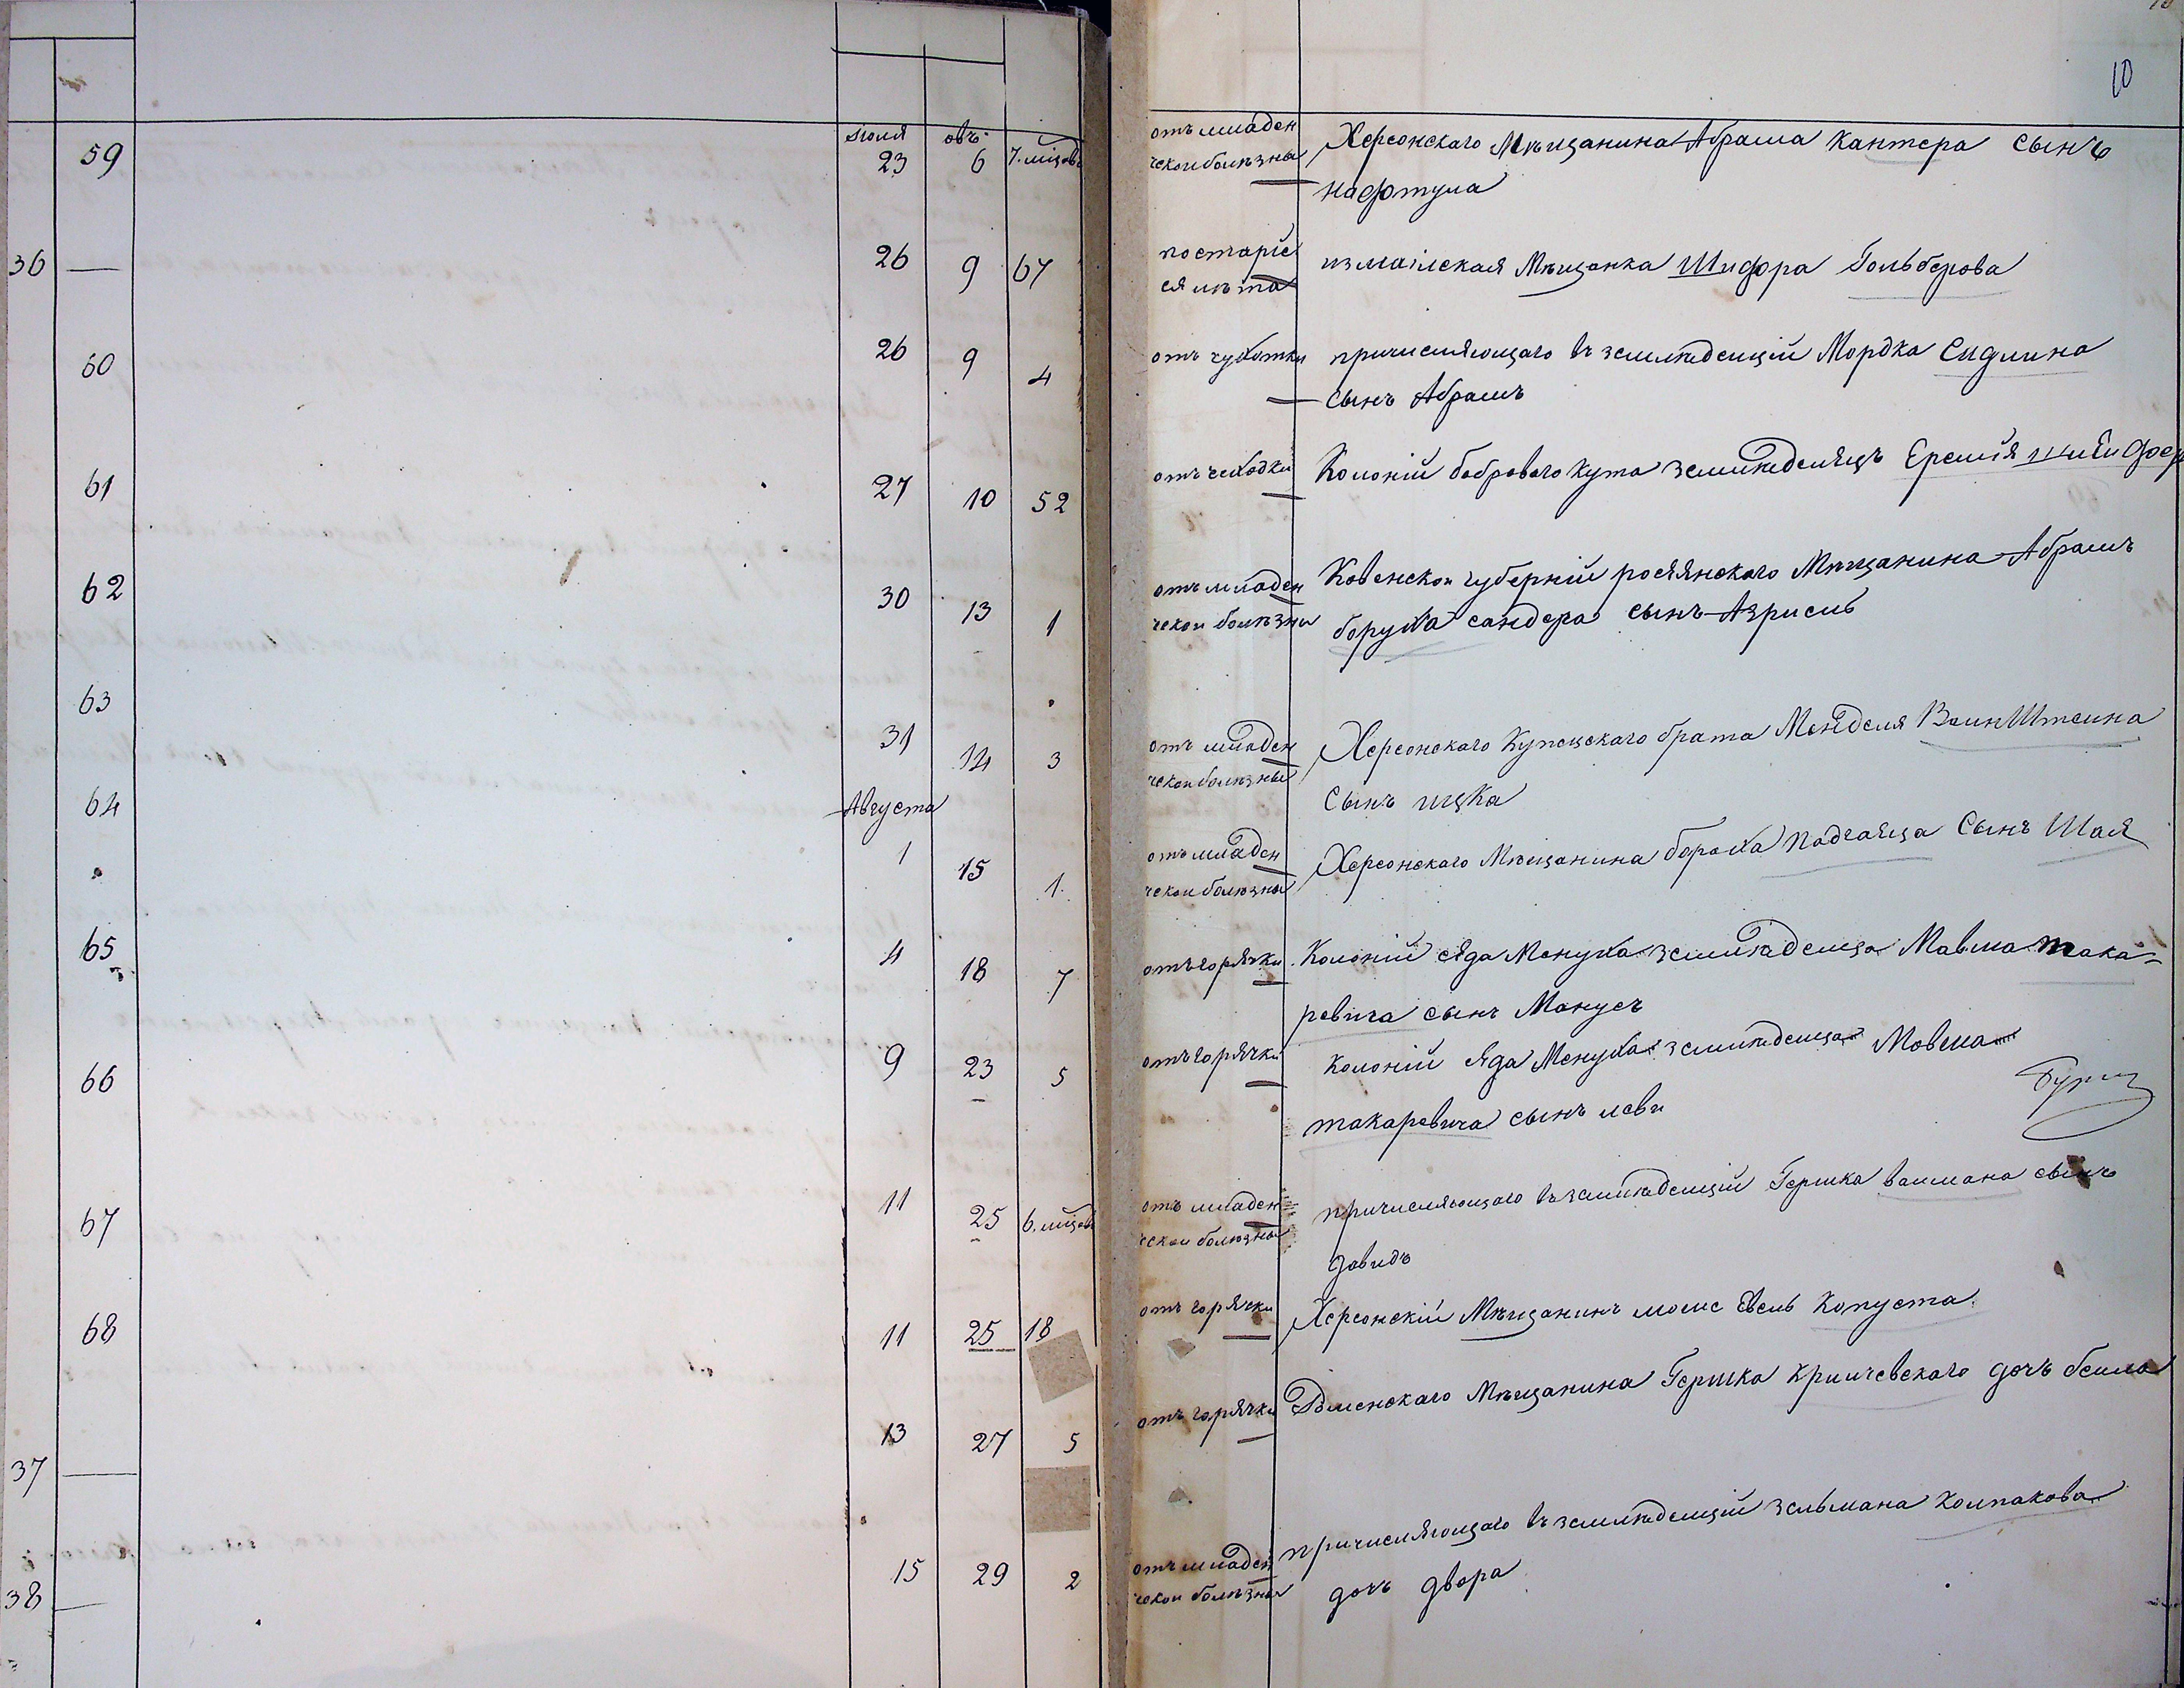 10
іюля овъ
59 23 6 7. мцовъ
отъ младен
ческои болѣзны
Херсонскаго Мѣщанина Абрама Кантера сынъ
нафтула
36 — 26 9 67
по старіе
ея лѣта
измаілская Мѣщанка Шифра Гольберова
60 26 9 4
отъ чухотки
причисляющаго въ земледелцій Мордка Сидлина
сынъ Абрамъ
61 27 10 52
отъ чеходки
Колоній бобрового кута землѣделяцъ Еремія
62 30 13 1
отъ младен
ческои болѣзны
Ковенскои губерніи росіянского Мѣщанина Абрамъ
боруха сандера сынъ Азриель
63 31 14 3
отъ младен
ческои болѣзны
Херсонскаго Купецскаго брата Менделя ВаинШтеина
Сынъ ицка
64 Августа
1 15 1.
отъ младен
ческои болѣзны
Херсонскаго Мѣщанина бораха Подгаяца Сынъ Шая
65 4 18 7
отъ горячки
Колоній сяда Менуха землѣделца Мавша мака=
ревича сынъ Манусъ
66 9 23 5
отъ горячки
Колоній Яда Менуха землѣделца Мовша
макаревича сынъ леви
67 11 25 6. мцовъ
отъ младен
ческои болѣзны
причисляющаго въ землѣделцій Гершка ваимана сынъ
давидъ
68 11 25 18
отъ горячки
Херсонскій Мѣщанинъ моис Евель Капуста
37 — 13 27 5
отъ горячки
Мѣщанина Гершка Кричевскаго дочъ беила
38 — 15 29 2
отъ младен
ческои болѣзны
причисляющаго въ землѣделцій зельмана Колпакова
дочъ двора